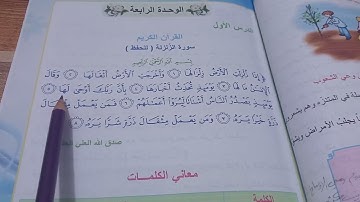 الوحدة الرابعة
الدرس الأول
القرآن الكريم
سورة الزلزلة ( للحفظ )
بِسْمِ اللَّهِ الرَّحْمَٰنِ الرَّحِيمِ
إِذَا زُلْزِلَتِ الْأَرْضُ زِلْزَالَهَا ۝ وَأَخْرَجَتِ الْأَرْضُ أَثْقَالَهَا ۝ وَقَالَ
الْإِنسَانُ مَا لَهَا ۝ يَوْمَئِذٍ تُحَدِّثُ أَخْبَارَهَا ۝ بِأَنَّ رَبَّكَ أَوْحَىٰ لَهَا ۝
يَوْمَئِذٍ يَصْدُرُ النَّاسُ أَشْتَاتًا لِّيُرَوْا أَعْمَالَهُمْ ۝ فَمَن يَعْمَلْ مِثْقَالَ
ذَرَّةٍ خَيْرًا يَرَهُ ۝ وَمَن يَعْمَلْ مِثْقَالَ ذَرَّةٍ شَرًّا يَرَهُ ۝
صدق الله العلي العظيم
معاني الكلمات
الكلمة